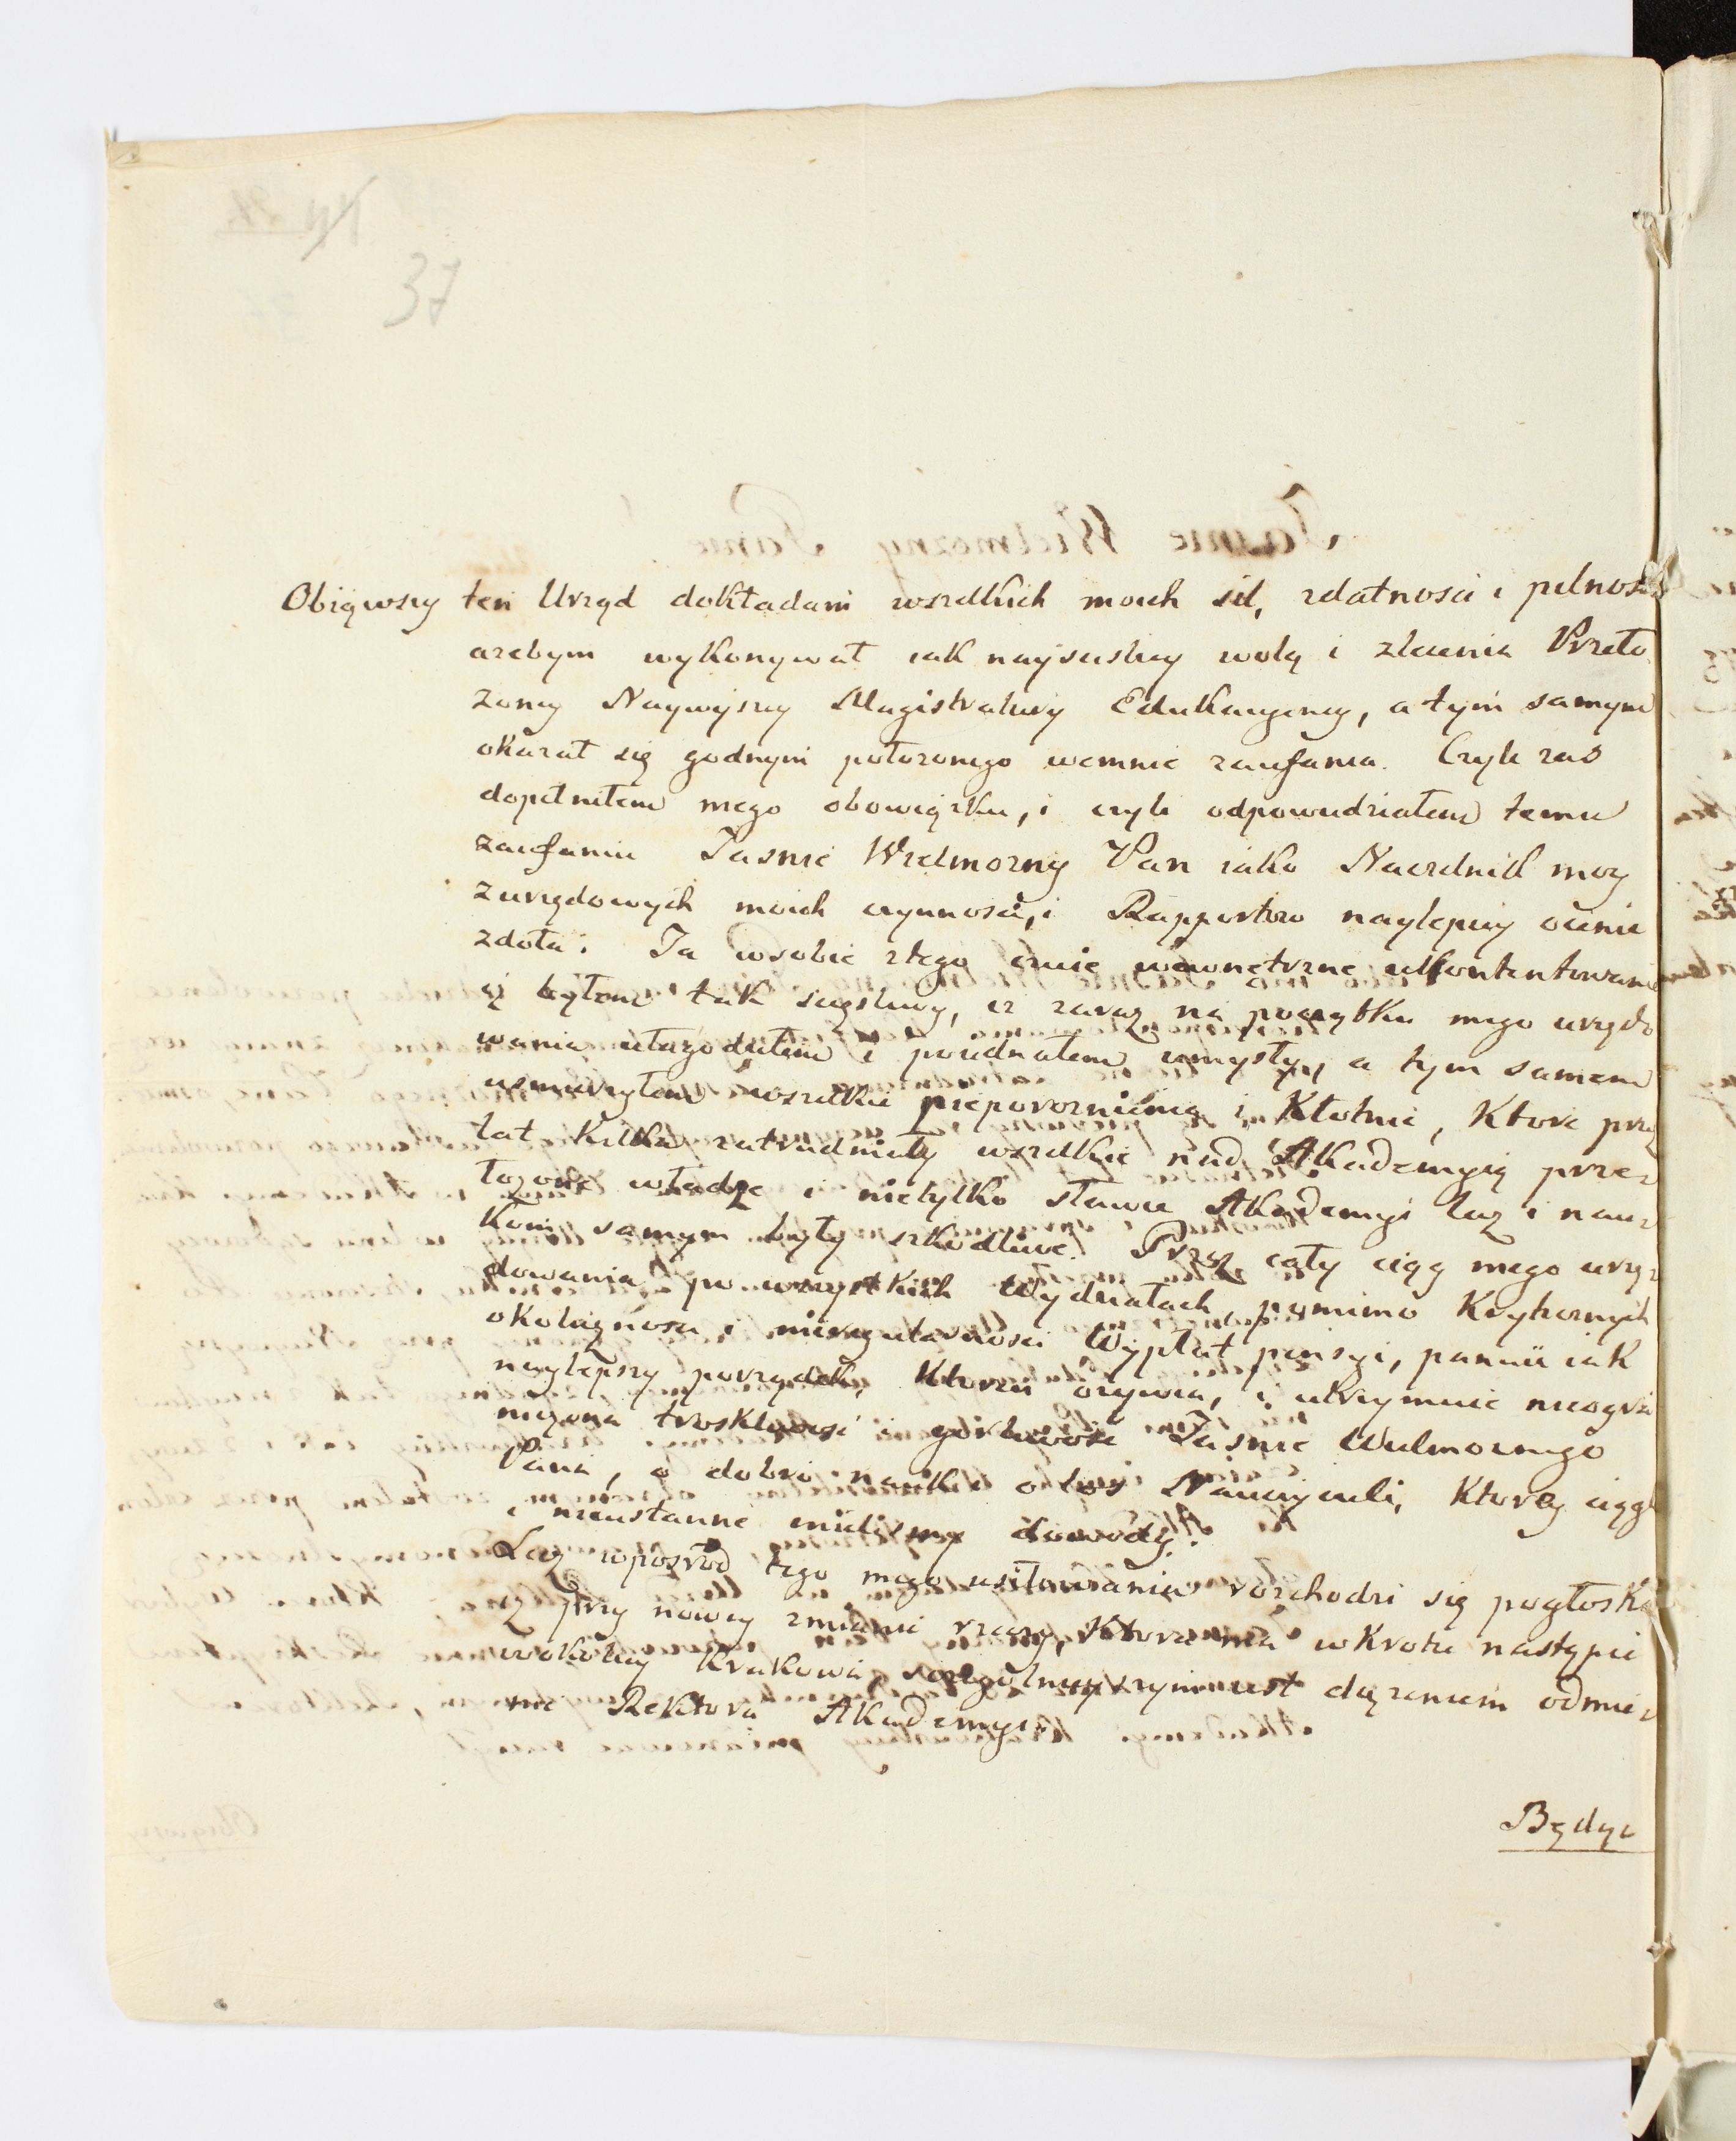 37
Obiąwszy ten Urząd dokładam wszelkich moich sił, zdatnosci i pilnosci
azebym wykonywał iak nayscisley wolą i zlecenia Przeło
zoney Naywyzszey Magistratury Edukacyiney, a tym samym
okazał się godnym położonego wemnie zaufania. Czyli zas
dopełniłem mego obowiązku, i czyli odpowiedziałem temu
zaufaniu Jasnie Wielmozny Pan iako Naczelnik moy
zurzędowych moich czynnosci, i Rapportow naylepiey ocenic
zdoła. Ja wsobie ztego czuię wewnętrzne ukontentowanie
iż byłem tak szczęsliwy, iz zaraz na początku mego urzędo
wania ułagodziłem i poiednałem umysły, a tym samem
usmierzyłem wszelkie pieporoznienia i Kłotnie, Ktore przez
lat kilka zatrudniały wszelkie nad Akademyią prze-
łozone władze i nietylko sławie Akademyi lecz i nau-
kom samym były szkodliwe. Przez cały ciąg mego urzę-
dowania po wszystkich Wydziałach, pomimo Krytycznych
okolicznosci i nieregularnosci Wypłat pensyi, panuie iak
naylepszy porządek, Ktoren ozywia, i utrzymuie nieogra
niczona troskliwosć i gorliwosć Jasnie Wielmoznego
Pana, o dobro nauk i o los Nauczycieli, Ktorey ciągłe
i nieustanne mielismy dowody.
Lecz wposrod tego mego usiłowania rozchodzi się pogłoska
iz przy nowey zmianie rzeczy, Ktora ma wkrotce nastąpic
wokolicy Krakowa, szczegolnieyszym iest dązeniem odmie-
nic Rektora Akademyi.
Będąc